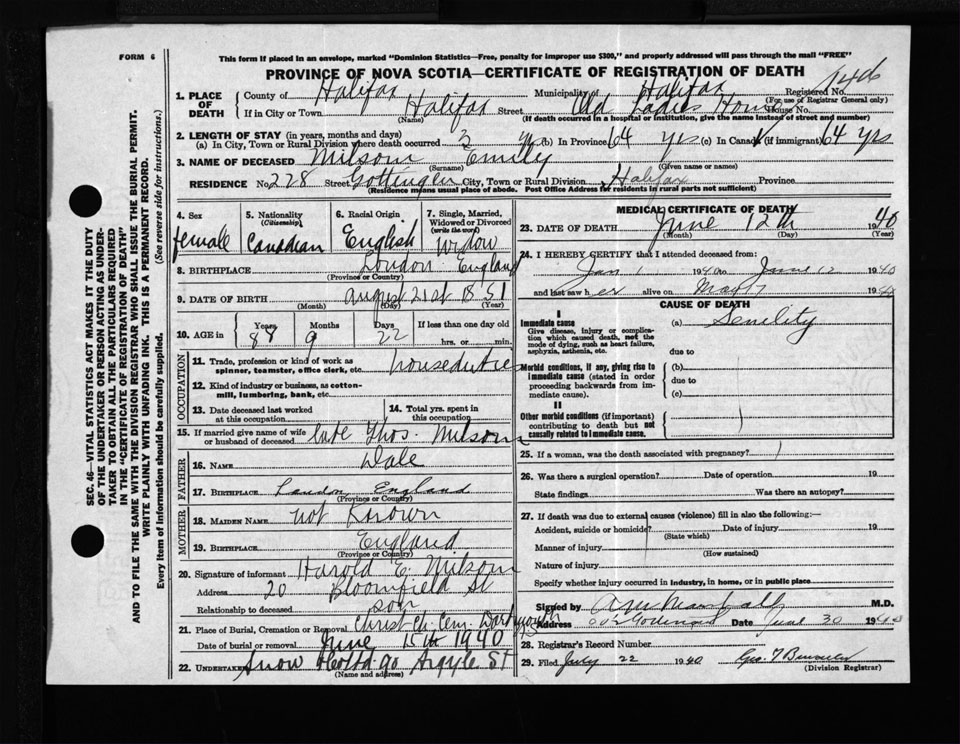 FORM 6
This form if placed in an envelope, marked "Dominion Statistics—Free, penalty for improper use $300," and properly addressed will pass through the mail "FREE"
PROVINCE OF NOVA SCOTIA—CERTIFICATE OF REGISTRATION OF DEATH
1. PLACE OF DEATH
County of Halifax Municipality of Halifax Registered No. 1406
(For use of Registrar General only)
If in City or Town Halifax Street Old Ladies Home House No.
(Name) (If death occurred in a hospital or institution, give the name instead of street and number)
2. LENGTH OF STAY (in years, months and days)
(a) In City, Town or Rural Division where death occurred 3 yrs (b) In Province 64 yrs (c) In Canada (if immigrant) 64 yrs
3. NAME OF DECEASED Milsom Emily
(Surname) (Given name or names)
RESIDENCE No. 228 Street Gottingen City, Town or Rural Division Halifax Province
(Residence means usual place of abode. Post Office Address for residents in rural parts not sufficient)
4. Sex female
5. Nationality (Citizenship) Canadian
6. Racial Origin English
7. Single, Married, Widowed or Divorced (write the word) Widow
8. BIRTHPLACE London England
(Province or Country)
9. DATE OF BIRTH August 21st 1851
(Month) (Day) (Year)
10. AGE in Years Months Days If less than one day old
88 9 22 hrs. or min.
OCCUPATION
11. Trade, profession or kind of work as spinner, teamster, office clerk, etc. houseduties
12. Kind of industry or business, as cotton-mill, lumbering, bank, etc.
13. Date deceased last worked at this occupation
14. Total yrs. spent in this occupation
15. If married give name of wife or husband of deceased late Thos. Milsom
FATHER
16. NAME Dale
17. BIRTHPLACE London England
(Province or Country)
MOTHER
18. MAIDEN NAME not Known
19. BIRTHPLACE England
(Province or Country)
20. Signature of informant Harold E. Milsom
Address 20 Bloomfield St
Relationship to deceased son
21. Place of Burial, Cremation or Removal Christ Ch. Cem. Dartmouth
Date of burial or removal June 15th 1940
22. UNDERTAKER Snow & Co Ltd 90 Argyle St
(Name and address)
MEDICAL CERTIFICATE OF DEATH
23. DATE OF DEATH June 12th 1940
(Month) (Day) (Year)
24. I HEREBY CERTIFY that I attended deceased from:
Jan 1 1940 to June 12 1940
and last saw her alive on May 17 1940
CAUSE OF DEATH
I
Immediate cause
Give disease, injury or complication which caused death, not the mode of dying, such as heart failure, asphyxia, asthenia, etc.
(a) Senility
due to
Morbid conditions, if any, giving rise to immediate cause (stated in order proceeding backwards from immediate cause).
(b)
due to
(c)
II
Other morbid conditions (if important) contributing to death but not causally related to immediate cause.
25. If a woman, was the death associated with pregnancy?
26. Was there a surgical operation? Date of operation 19
State findings Was there an autopsy?
27. If death was due to external causes (violence) fill in also the following:—
Accident, suicide or homicide? Date of injury 19
(State which)
Manner of injury
(How sustained)
Nature of injury
Specify whether injury occurred in industry, in home, or in public place
Signed by A M Marshall M.D.
Address Date June 30 1940
28. Registrar's Record Number
29. Filed July 22 1940 Geo. T
(Division Registrar)
SEC. 46—VITAL STATISTICS ACT MAKES IT THE DUTY
OF THE UNDERTAKER OR PERSON ACTING AS UNDER-
TAKER TO OBTAIN ALL THE PARTICULARS REQUIRED
IN THE "CERTIFICATE OF REGISTRATION OF DEATH"
AND TO FILE THE SAME WITH THE DIVISION REGISTRAR WHO SHALL ISSUE THE BURIAL PERMIT.
WRITE PLAINLY WITH UNFADING INK. THIS IS A PERMANENT RECORD.
Every item of Information should be carefully supplied. (See reverse side for instructions.)